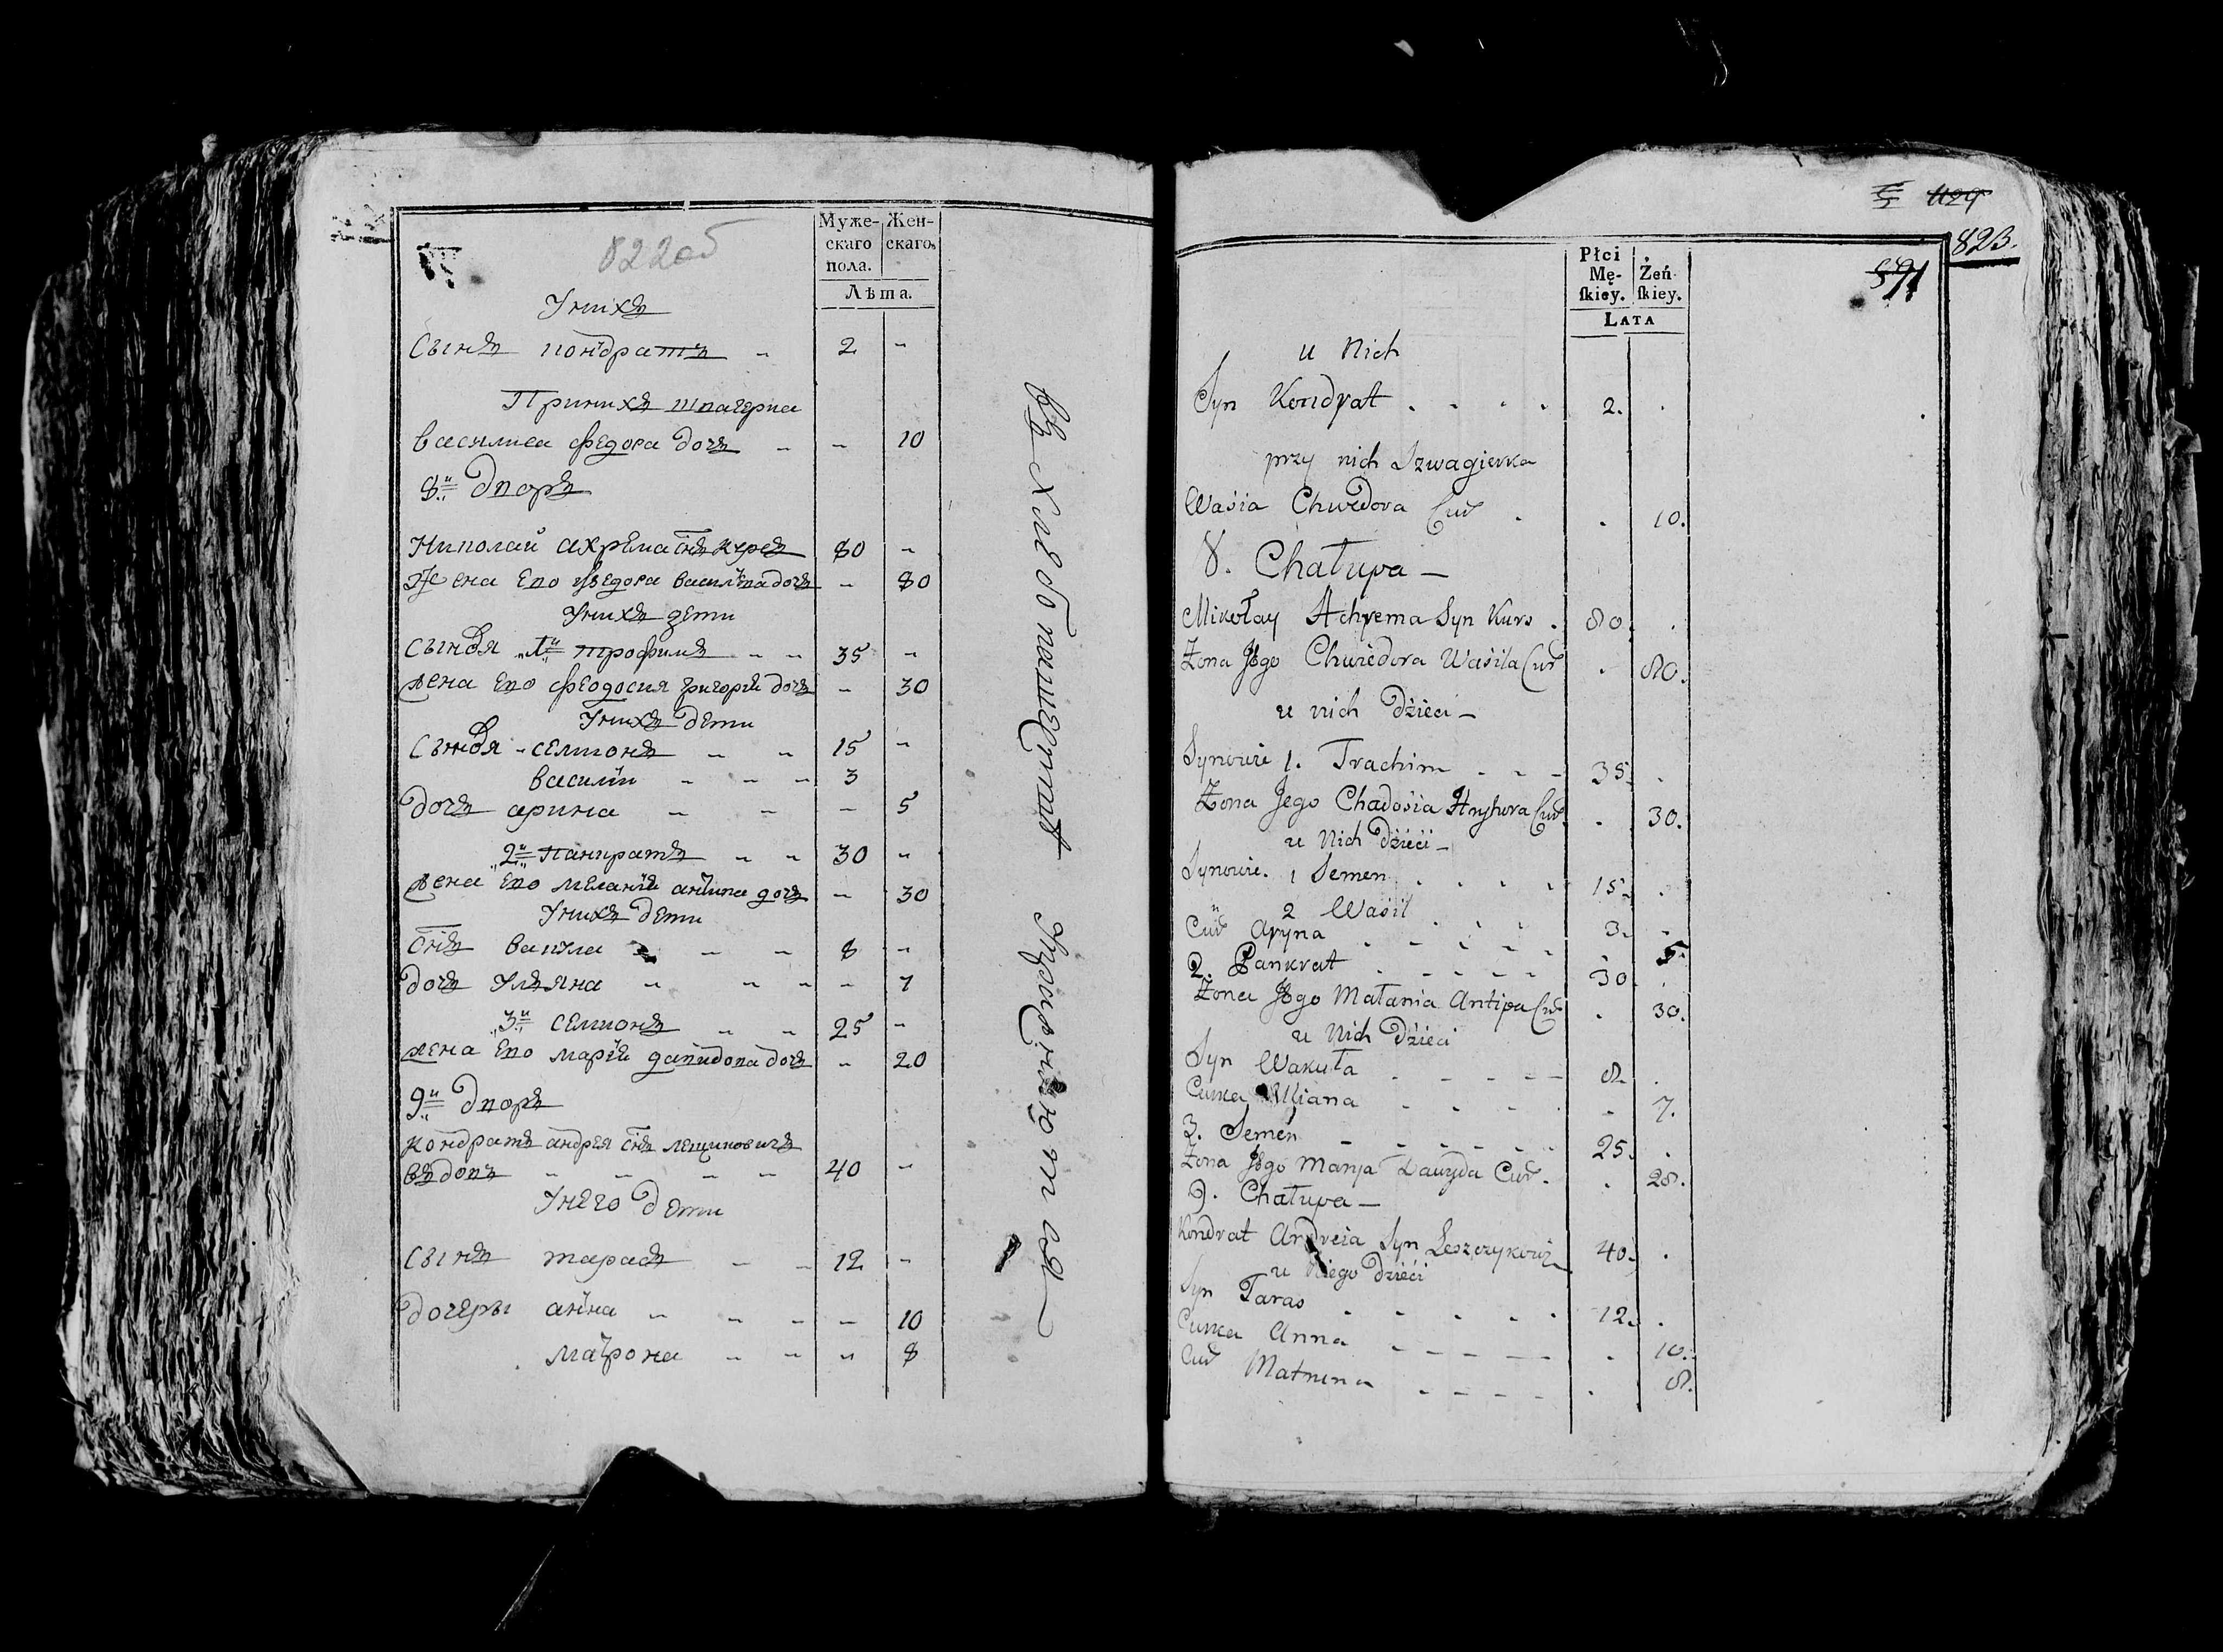 822об
Муже-
скаго
пола.
Жен-
скаго.
Лѣта.
У нихъ
Сынъ Кондратъ 2 -
При нихъ швагерка
Василиса Федора дочъ - 10
8й Дворъ
Николай Ахрема снъ Курсъ 80 -
Жена его Федора Василева дочъ - 80
У нихъ дети
Сыновя 1й Трофимъ 35 -
Жена его Феодосия Григорїя дочъ - 30
У нихъ дети
Сыновя Семионъ 15 -
Василїй 3
Дочъ Арина - 5
2й Панкратъ 30 -
Жена его Меланїя Антипа дочъ - 30
У нихъ дети
Снъ Вакула 8 -
Дочъ Ульяна - 7
3й Семионъ 25 -
Жена его Марїя Давидова дочъ - 20
9й Дворъ
Кондратъ Андрея снъ Лещиковичъ
Вдовъ 40 -
У него дети
Сынъ Тарасъ 12 -
Дочеры Анна - 10
Матрона - 8
1129
823.
891
Płci
Mę-
ſkiey.
Żeń
ſkiey.
LATA
u Nich
Syn Kondrat 2.
przy nich Szwagierka
Wasia Chwedora Cur 10.
8. Chałupa
Mikołay Achrema Syn Kurs 80.
Żona Jego Chwiedora Wasila Cur 80.
u nich Dzieci
Synowie 1. Trachim 35.
Żona Jego Chadosia Hryhora Cur 30.
u Nich Dzieci
Synowie. 1 Semen 15.
2 Wasil 3.
Cur Aryna 5.
2. Pankrat 30
Żona Jego Małania Antipa Cur 30.
u Nich Dzieci
Syn Wakuła 8.
Curka Uliana 7.
3. Semen 25.
Żona Jego Marya Dawyda Cur. 28.
9. Chałupa
Kondrat Andreia Syn Leszczykowicz 40.
u Niego Dzieci
Syn Taras 12.
Curka Anna 10.
Cur Matruna 8.